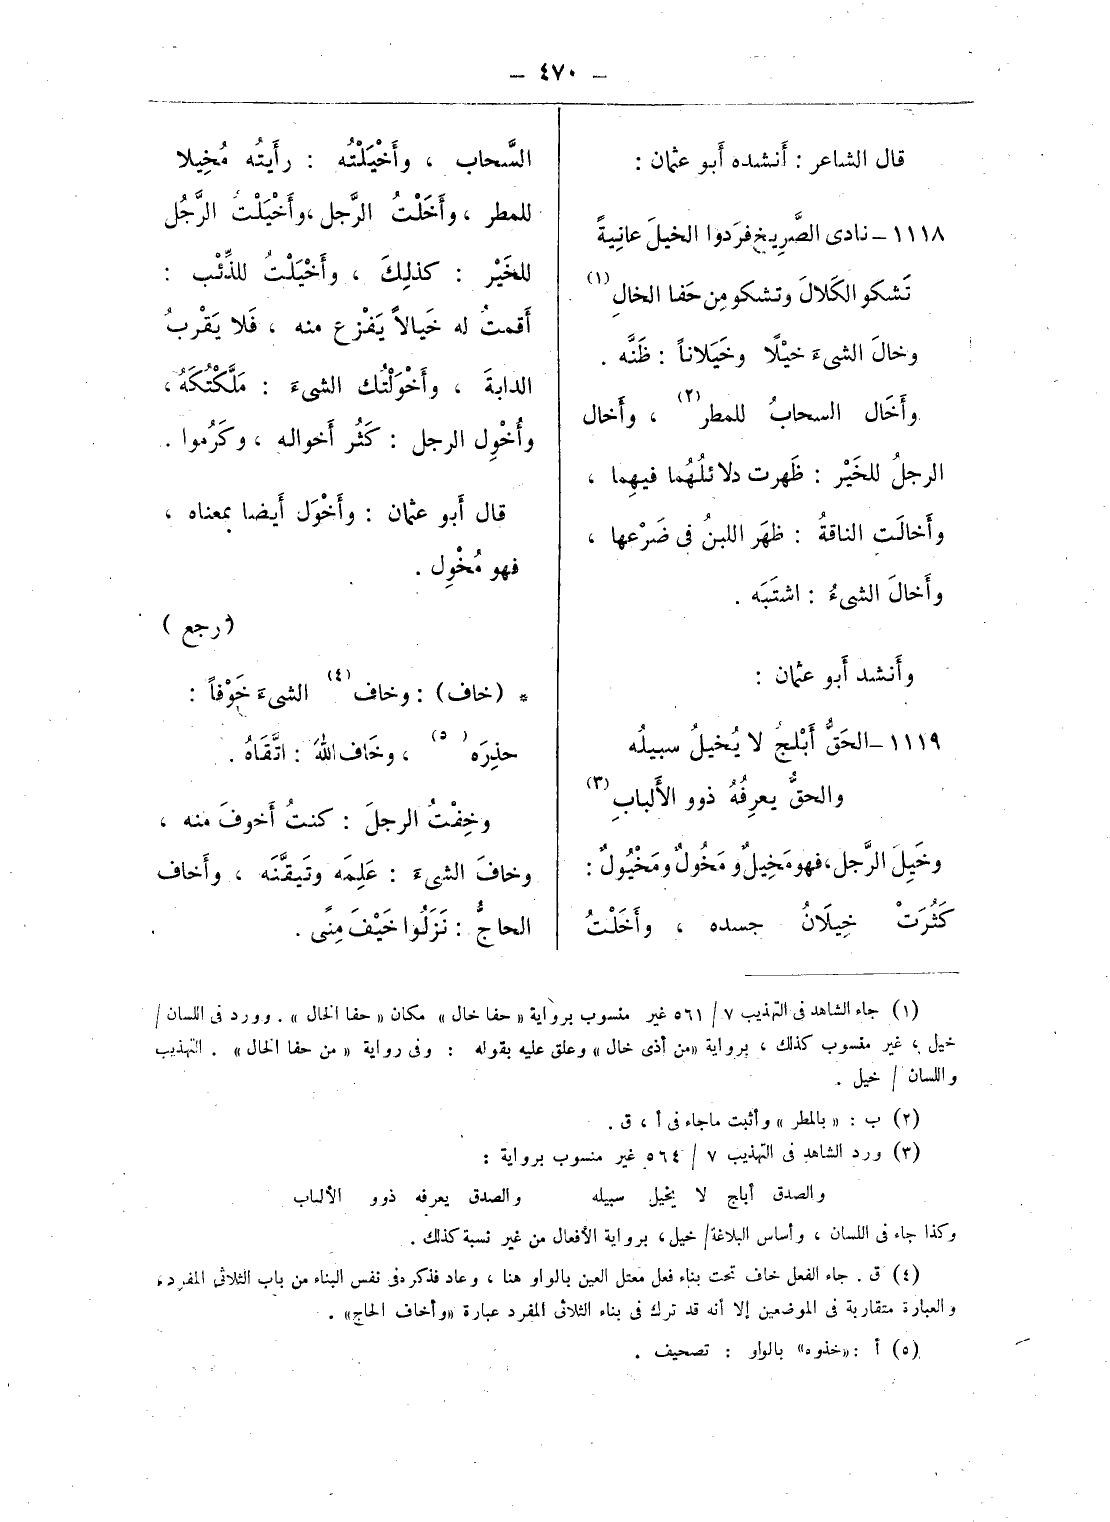 — ٤٧٠ —
قال الشاعر : أَنشده أَبو عثمان :
١١١٨ – نادى الصَّرِيخ فرَدوا الخيلَ عانِيةً
تَشكو الكَلالَ وتشكو مِن حَفا الخالِ (١)
وخالَ الشىءَ خيْلًا وخَيَلاناً : ظَنَّه .
وأَخَال السحابُ للمطر (٢) ، وأَخال
الرجلُ للخَيْر : ظَهرت دلائلُهُما فيهِما ،
وأَخالَتِ الناقةُ : ظهَر اللبنُ فى ضَرْعها ،
وأَخالَ الشىءُ : اشتَبَه .
وأَنشد أَبو عثمان :
١١١٩ – الحَقُّ أَبْلجُ لا يُخيلُ سبيلُه
والحقُّ يعرِفُهُ ذوو الأَلبابِ (٣)
وخَيِلَ الرَّجل، فهو مَخِيلٌ ومَخُولٌ ومَخْيُولٌ :
كَثُرَتْ خِيلَانُ جسده ، وأَخَلْتُ
السَّحاب ، وأَخْيَلْتُه : رأَيتُه مُخِيلا
للمطر ، وأَخَلْتُ الرَّجل ، وأَخْيَلْتُ الرَّجُل
للخَيْر : كذلِكَ ، وأَخْيَلْتُ للذِّئْب :
أَقمتُ له خَيالاً يَفْزع منه ، فَلا يَقْربُ
الدابةَ ، وأَخْوَلْتُك الشىءَ : مَلَّكْتُكَهُ ،
وأُخْوِل الرجل : كَثُر أَخواله ، وكَرُموا .
قال أَبو عثمان : وأَخْوَل أَيضا بمعناه ،
فهو مُخْوِل .
( رجع )
* (خاف) : وخاف (٤) الشىءَ خَوْفاً :
حذِرَه (٥) ، وخَاف اللهَ : اتَّقَاهُ .
وخِفْتُ الرجلَ : كنتُ أَخوفَ منه ،
وخافَ الشىءَ : عَلِمَه وتَيقَّنَه ، وأَخاف
الحاجُّ : نَزَلُوا خَيْفَ مِنًى .
(١) جاء الشاهد فى التهذيب ٧ / ٥٦١ غير منسوب برواية « حفا خال » مكان « حفا الخال » . وورد فى اللسان /
خيل ، غير منسوب كذلك ، برواية « من أذى خال » وعلق عليه بقوله : وفى رواية « من حفا الخال » . التهذيب
واللسان / خيل .
(٢) ب : « بالمطر » وأثبت ماجاء فى أ ، ق .
(٣) ورد الشاهد فى التهذيب ٧ / ٥٦٤ غير منسوب برواية :
والصدق أباج لا يخيل سبيله والصدق يعرفه ذوو الألباب
وكذا جاء فى اللسان ، وأساس البلاغة / خيل ، برواية الأفعال من غير نسبة كذلك .
(٤) ق . جاء الفعل خاف تحت بناء فعل معتل العين بالواو هنا ، وعاد فذكره فى نفس البناء من باب الثلاثى المفرد ،
والعبارة متقاربة فى الموضعين إلا أنه قد ترك فى بناء الثلاثى المفرد عبارة « وأخاف الحاج » .
(٥) أ : « خذوه » بالواو : تصحيف .